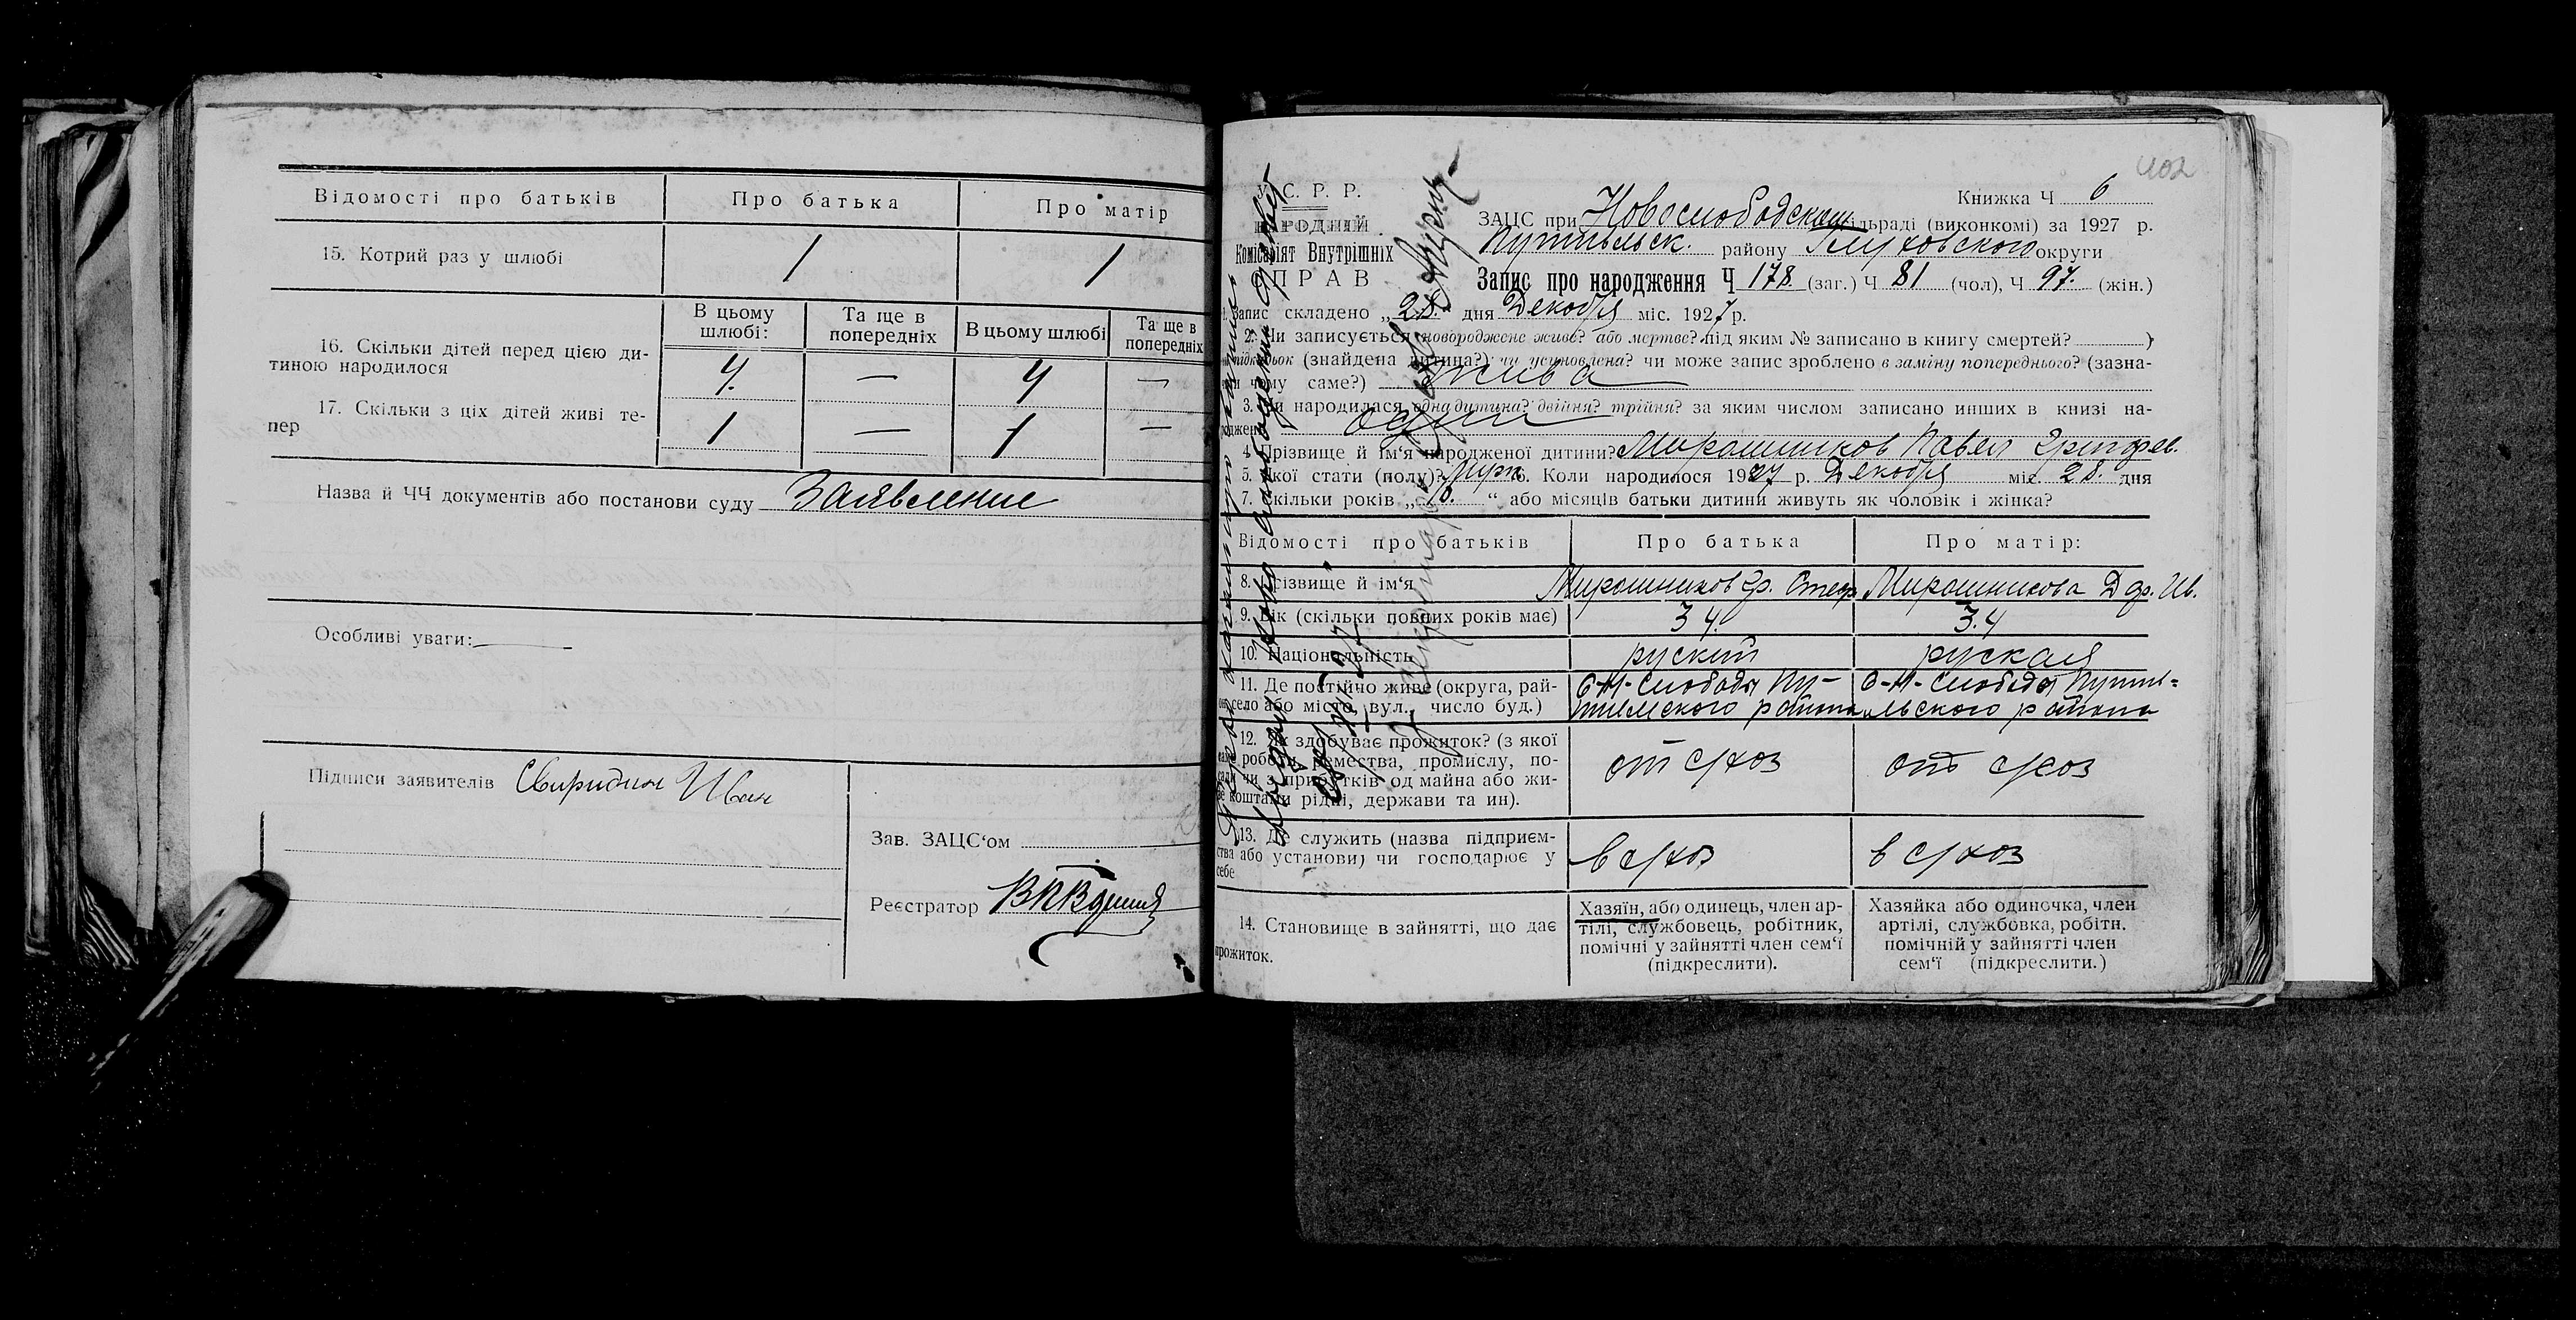 Відомості про батьків Про батька Про матір
15. Котрий раз у шлюбі 1 1
В цьому шлюбі: Та ще в попередніх В цьому шлюбі Та ще в попередніх
16. Скільки дітей перед цією ди-
тиною народилося 4. — 4 —
17. Скільки з ціх дітей живі те-
пер 1 — 1 —
Назва й ЧЧ документів або постанови суду Заявление
Особливі уваги: —
Підписи заявителів Свиридин Иван
Зав. ЗАЦС'ом
Реєстратор
402
У. С. Р. Р.
НАРОДНІЙ
Комісаріят Внутрішніх
СПРАВ
Книжка Ч 6
ЗАЦС при Новослободском сільраді (виконкомі) за 1927 р.
Путивльск. району Глуховского округи
Запис про народження Ч 178. (заг.) Ч 81 (чол), Ч 97. (жін.)
1. Запис складено „28.“ дня Декабря міс. 1927 р.
2. Чи записується (новороджене живе? або мертве? під яким № записано в книгу смертей? )
підкидьок (знайдена дитина?) чи усиновлена? чи може запис зроблено в заміну попереднього? (зазна-
чити чому саме?) жива
3. Чи народилася одна дитина? двійня? трійня? за яким числом записано инших в книзі на-
роджень один
4. Прізвище й ім'я народженої дитини? Мирошников Павел Григорьев.
5. Якої стати (полу)? Муж. 6. Коли народилося 1927 р. Декабря міс. 28. дня
7. Скільки років „ “ або місяців батьки дитини живуть як чоловік і жінка?
Відомості про батьків Про батька Про матір:
8. Прізвище й ім'я Мирошников Гр. Стеф Мирошникова Д Ив.
9. Вік (скільки повних років має) 34. 34
10. Національність руский руская
11. Де постійно живе (округа, рай- С-Н-Слобода Пу- С-Н-Слобода Путив-
он, село або місто, вул., число буд.) тивлского района льского района
12. Як здобуває прожиток? (з якої
саме роботи, ремества, промислу, по-
сади чи з прибутків од майна або жи-
ве коштами рідні, держави та ин). от с/хоз от с/хоз
13. Де служить (назва підприєм-
ства або установи) чи господарює у
себе в с/хоз в с/хоз
14. Становище в зайнятті, що дає
прожиток.
Хазяїн, або одинець, член ар-
тілі, службовець, робітник,
помічні у зайнятті член сем'ї
(підкреслити).
Хазяйка або одиночка, член
артілі, службовка, робітн.
помічній у зайнятті член
сем'ї (підкреслити.)